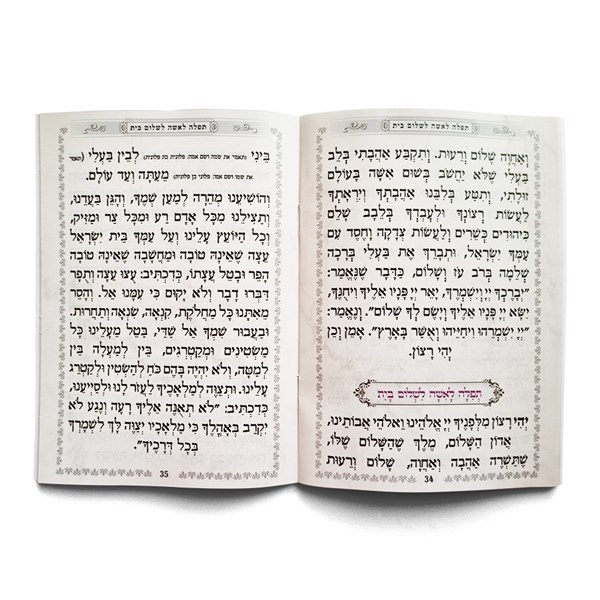 תפלה לאשה לשלום בית
וְאַחֲוָה שָׁלוֹם וְרֵעוּת. וְתִקְבַּע אַהֲבָתִי בְּלֵב
בַּעְלִי שֶׁלֹּא יַחֲשֹׁב בְּשׁוּם אִשָּׁה בָּעוֹלָם
זוּלָתִי, וְתִטַּע בְּלִבֵּנוּ אַהֲבָתְךָ וְיִרְאָתְךָ
לַעֲשׂוֹת רְצוֹנְךָ וּלְעָבְדְךָ בְּלֵבָב שָׁלֵם
כִּיהוּדִים כְּשֵׁרִים וְלַעֲשׂוֹת צְדָקָה וָחֶסֶד עִם
עַמְּךָ יִשְׂרָאֵל, וּתְבָרֵךְ אֶת בַּעְלִי בְּרָכָה
שְׁלֵמָה בְּרֹב עֹז וְשָׁלוֹם, כַּדָּבָר שֶׁנֶּאֱמַר:
"יְבָרֶכְךָ יְיָ וְיִשְׁמְרֶךָ, יָאֵר יְיָ פָּנָיו אֵלֶיךָ וִיחֻנֶּךָּ,
יִשָּׂא יְיָ פָּנָיו אֵלֶיךָ וְיָשֵׂם לְךָ שָׁלוֹם". וְנֶאֱמַר:
"יְיָ יִשְׁמְרֵהוּ וִיחַיֵּהוּ וְאֻשַּׁר בָּאָרֶץ". אָמֵן וְכֵן
יְהִי רָצוֹן.
תְּפִלָּה לָאִשָּׁה לִשְׁלוֹם בַּיִת
יְהִי רָצוֹן מִלְּפָנֶיךָ יְיָ אֱלֹהֵינוּ וֵאלֹהֵי אֲבוֹתֵינוּ,
אֲדוֹן הַשָּׁלוֹם, מֶלֶךְ שֶׁהַשָּׁלוֹם שֶׁלּוֹ,
שֶׁתַּשְׁרֶה אַהֲבָה וְאַחֲוָה, שָׁלוֹם וְרֵעוּת
34
תפלה לאשה לשלום בית
בֵּינִי (תאמר את שמה ושם אמה: פלונית בת פלונית) לְבֵין בַּעְלִי (תאמר
את שמו ושם אמו: פלוני בן פלונית) מֵעַתָּה וְעַד עוֹלָם.
וְהוֹשִׁיעֵנוּ מְהֵרָה לְמַעַן שְׁמֶךָ, וְהָגֵן בַּעֲדֵנוּ,
וְתַצִּילֵנוּ מִכָּל אָדָם רַע וּמִכָּל צַר וּמַזִּיק,
וְכָל הַיּוֹעֵץ עָלֵינוּ וְעַל עַמְּךָ בֵּית יִשְׂרָאֵל
עֵצָה שֶׁאֵינָהּ טוֹבָה וּמַחֲשָׁבָה שֶׁאֵינָהּ טוֹבָה
הָפֵר וּבַטֵּל עֲצָתוֹ, כְּדִכְתִיב: עֻצוּ עֵצָה וְתֻפָר
דַּבְּרוּ דָבָר וְלֹא יָקוּם כִּי עִמָּנוּ אֵל. וְהָסֵר
מֵאִתָּנוּ כָּל מַחֲלֹקֶת, קִנְאָה, שִׂנְאָה וְתַחֲרוּת.
וּבַעֲבוּר שִׁמְךָ אֵל שַׁדַּי, בַּטֵּל מֵעָלֵינוּ כָּל
מַשְׂטִינִים וּמְקַטְרְגִים, בֵּין לְמַעְלָה בֵּין
לְמַטָּה, וְלֹא יִהְיֶה בָּהֶם כֹּחַ לְהַשְׂטִין וּלְקַטְרֵג
עָלֵינוּ. וּתְצַוֶּה לְמַלְאָכֶיךָ לַעֲזֹר לָנוּ וּלְסַיְּעֵנוּ,
כְּדִכְתִיב: "לֹא תְאֻנֶּה אֵלֶיךָ רָעָה וְנֶגַע לֹא
יִקְרַב בְּאָהֳלֶךָ כִּי מַלְאָכָיו יְצַוֶּה לָּךְ לִשְׁמָרְךָ
בְּכָל דְּרָכֶיךָ".
35